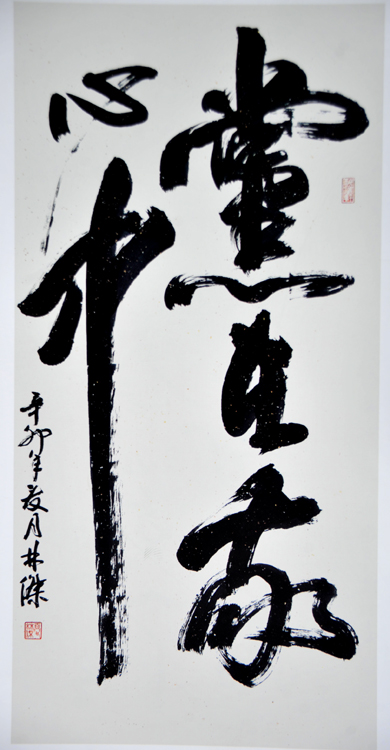 黨在我
心中
辛卯年夏月林傑